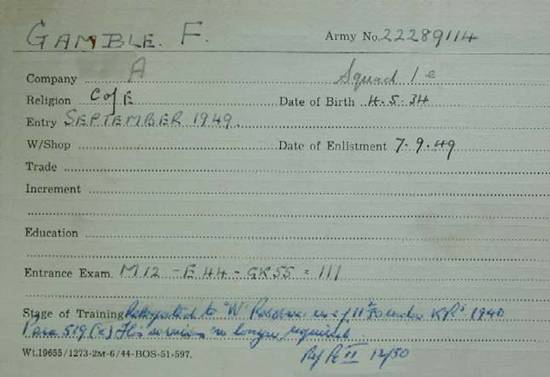 GAMBLE. F. Army No. 22289114
Company A Squad 1 e
Religion C of E Date of Birth 4.5.34
Entry SEPTEMBER 1949.
W/Shop Date of Enlistment 7.9.49
Trade
Increment
Education
Entrance Exam. M12 - E44 - GK55 = 111
Stage of Training to "W" Reserve under KRs 1940
Para 519 (a) His services no longer required.
Wt.19655/1273-2M-6/44-BOS-51-597. Pt II 12/50